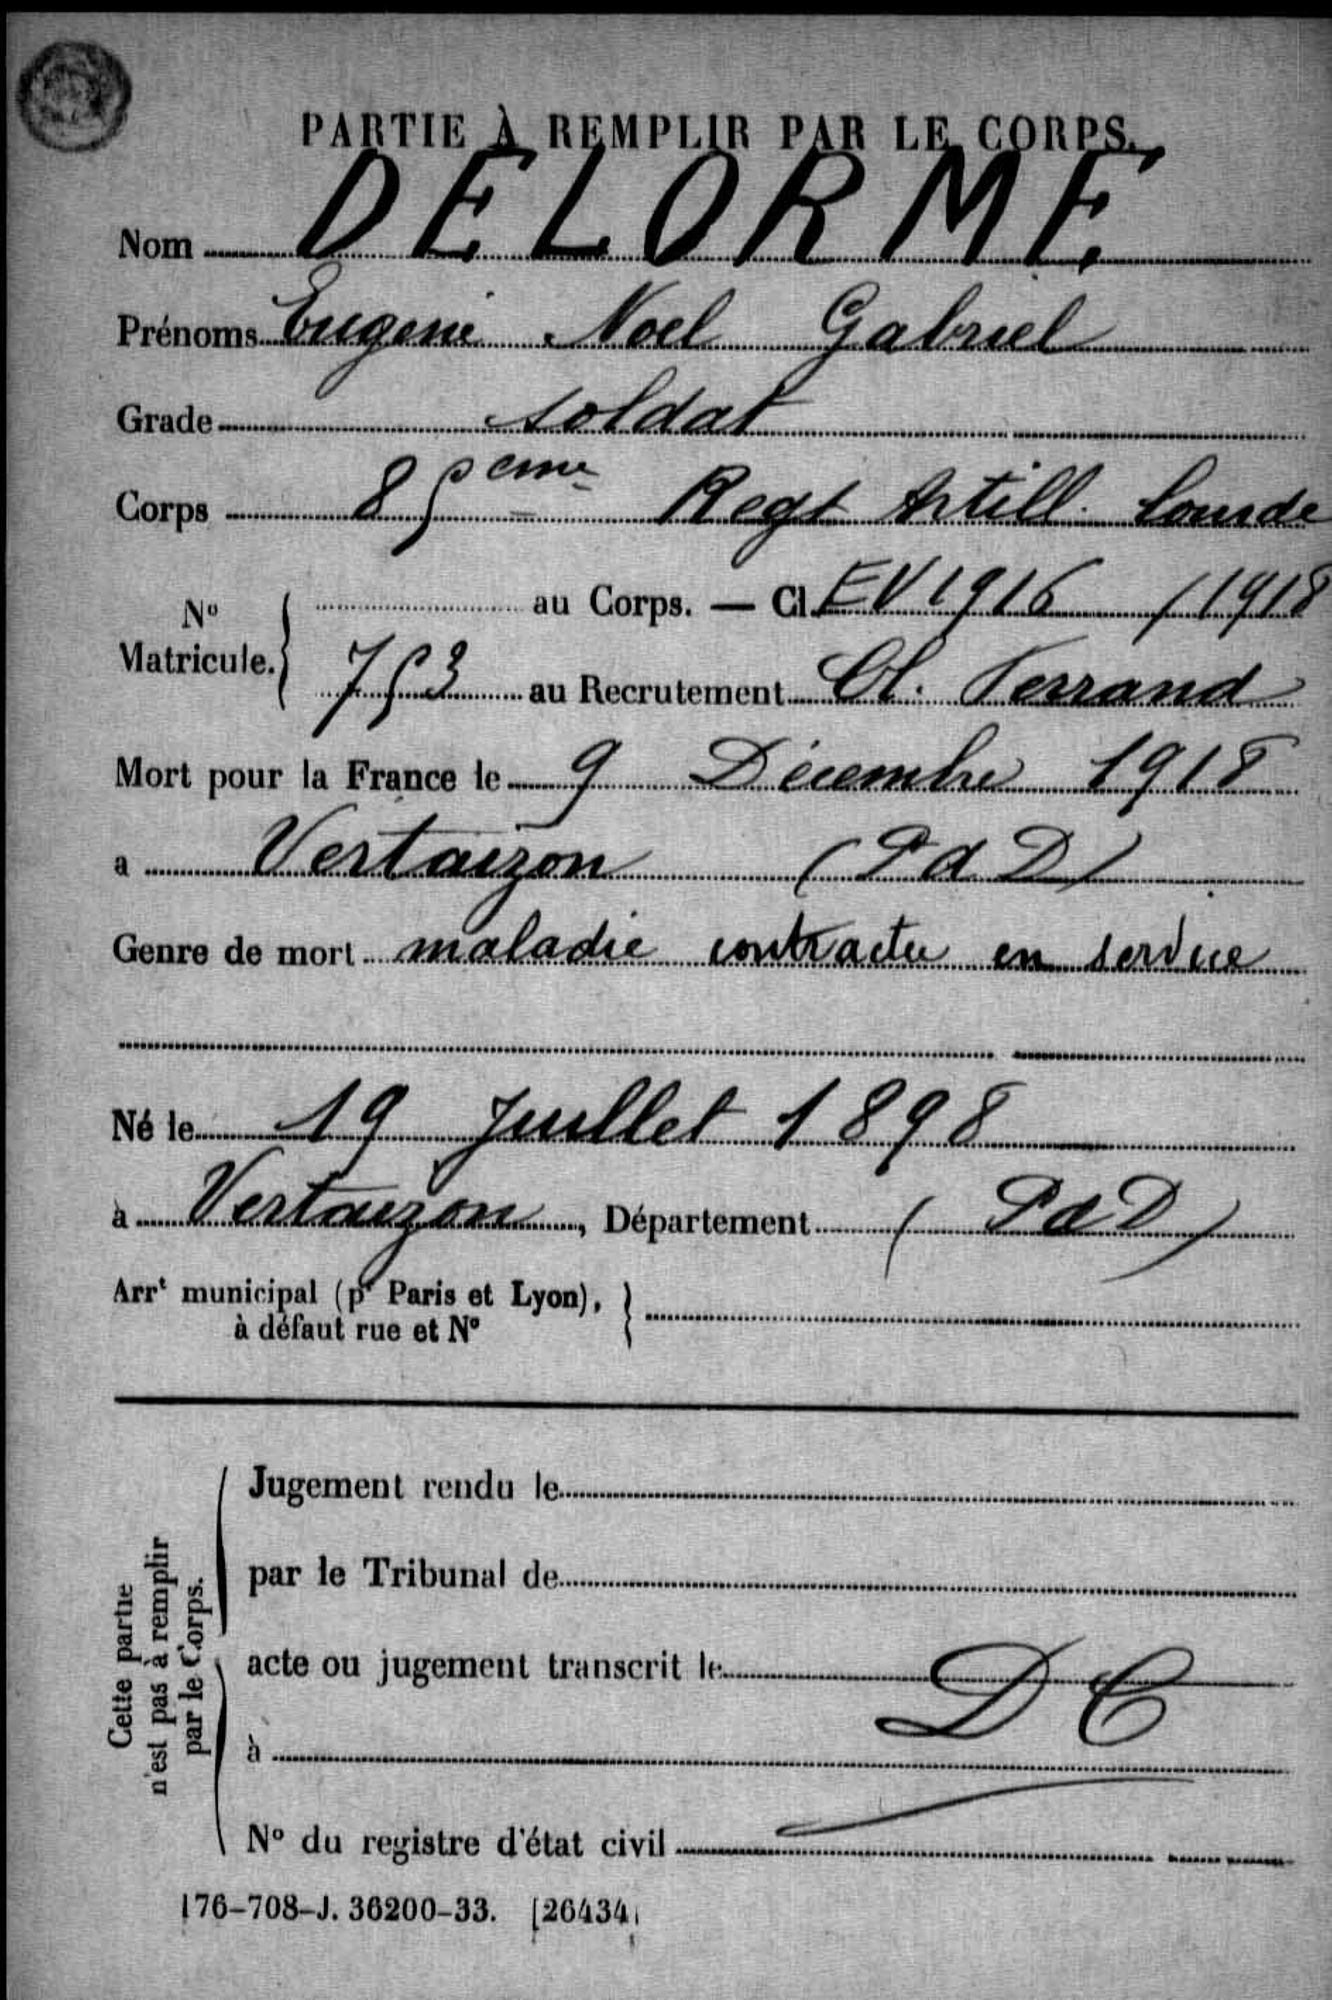 PARTIE À REMPLIR PAR LE CORPS.
Nom DELORME
Prénoms Eugene Noel Gabriel
Grade soldat
Corps 85eme Regt Artill. Lourde
No Matricule. { au Corps. — Cl. EV 1916 / 1918
753 au Recrutement Cl. Ferrand
Mort pour la France le 9 Décembre 1918
a Vertaizon (P d D)
Genre de mort maladie contractée en service
Né le 19 Juillet 1898
à Vertaizon, Département (P d D)
Arrt municipal (pr Paris et Lyon), }
à défaut rue et No
Cette partie
n'est pas à remplir
par le Corps.
Jugement rendu le
par le Tribunal de
acte ou jugement transcrit le
D C
à
No du registre d'état civil
176-708-J. 36200-33. [26434]